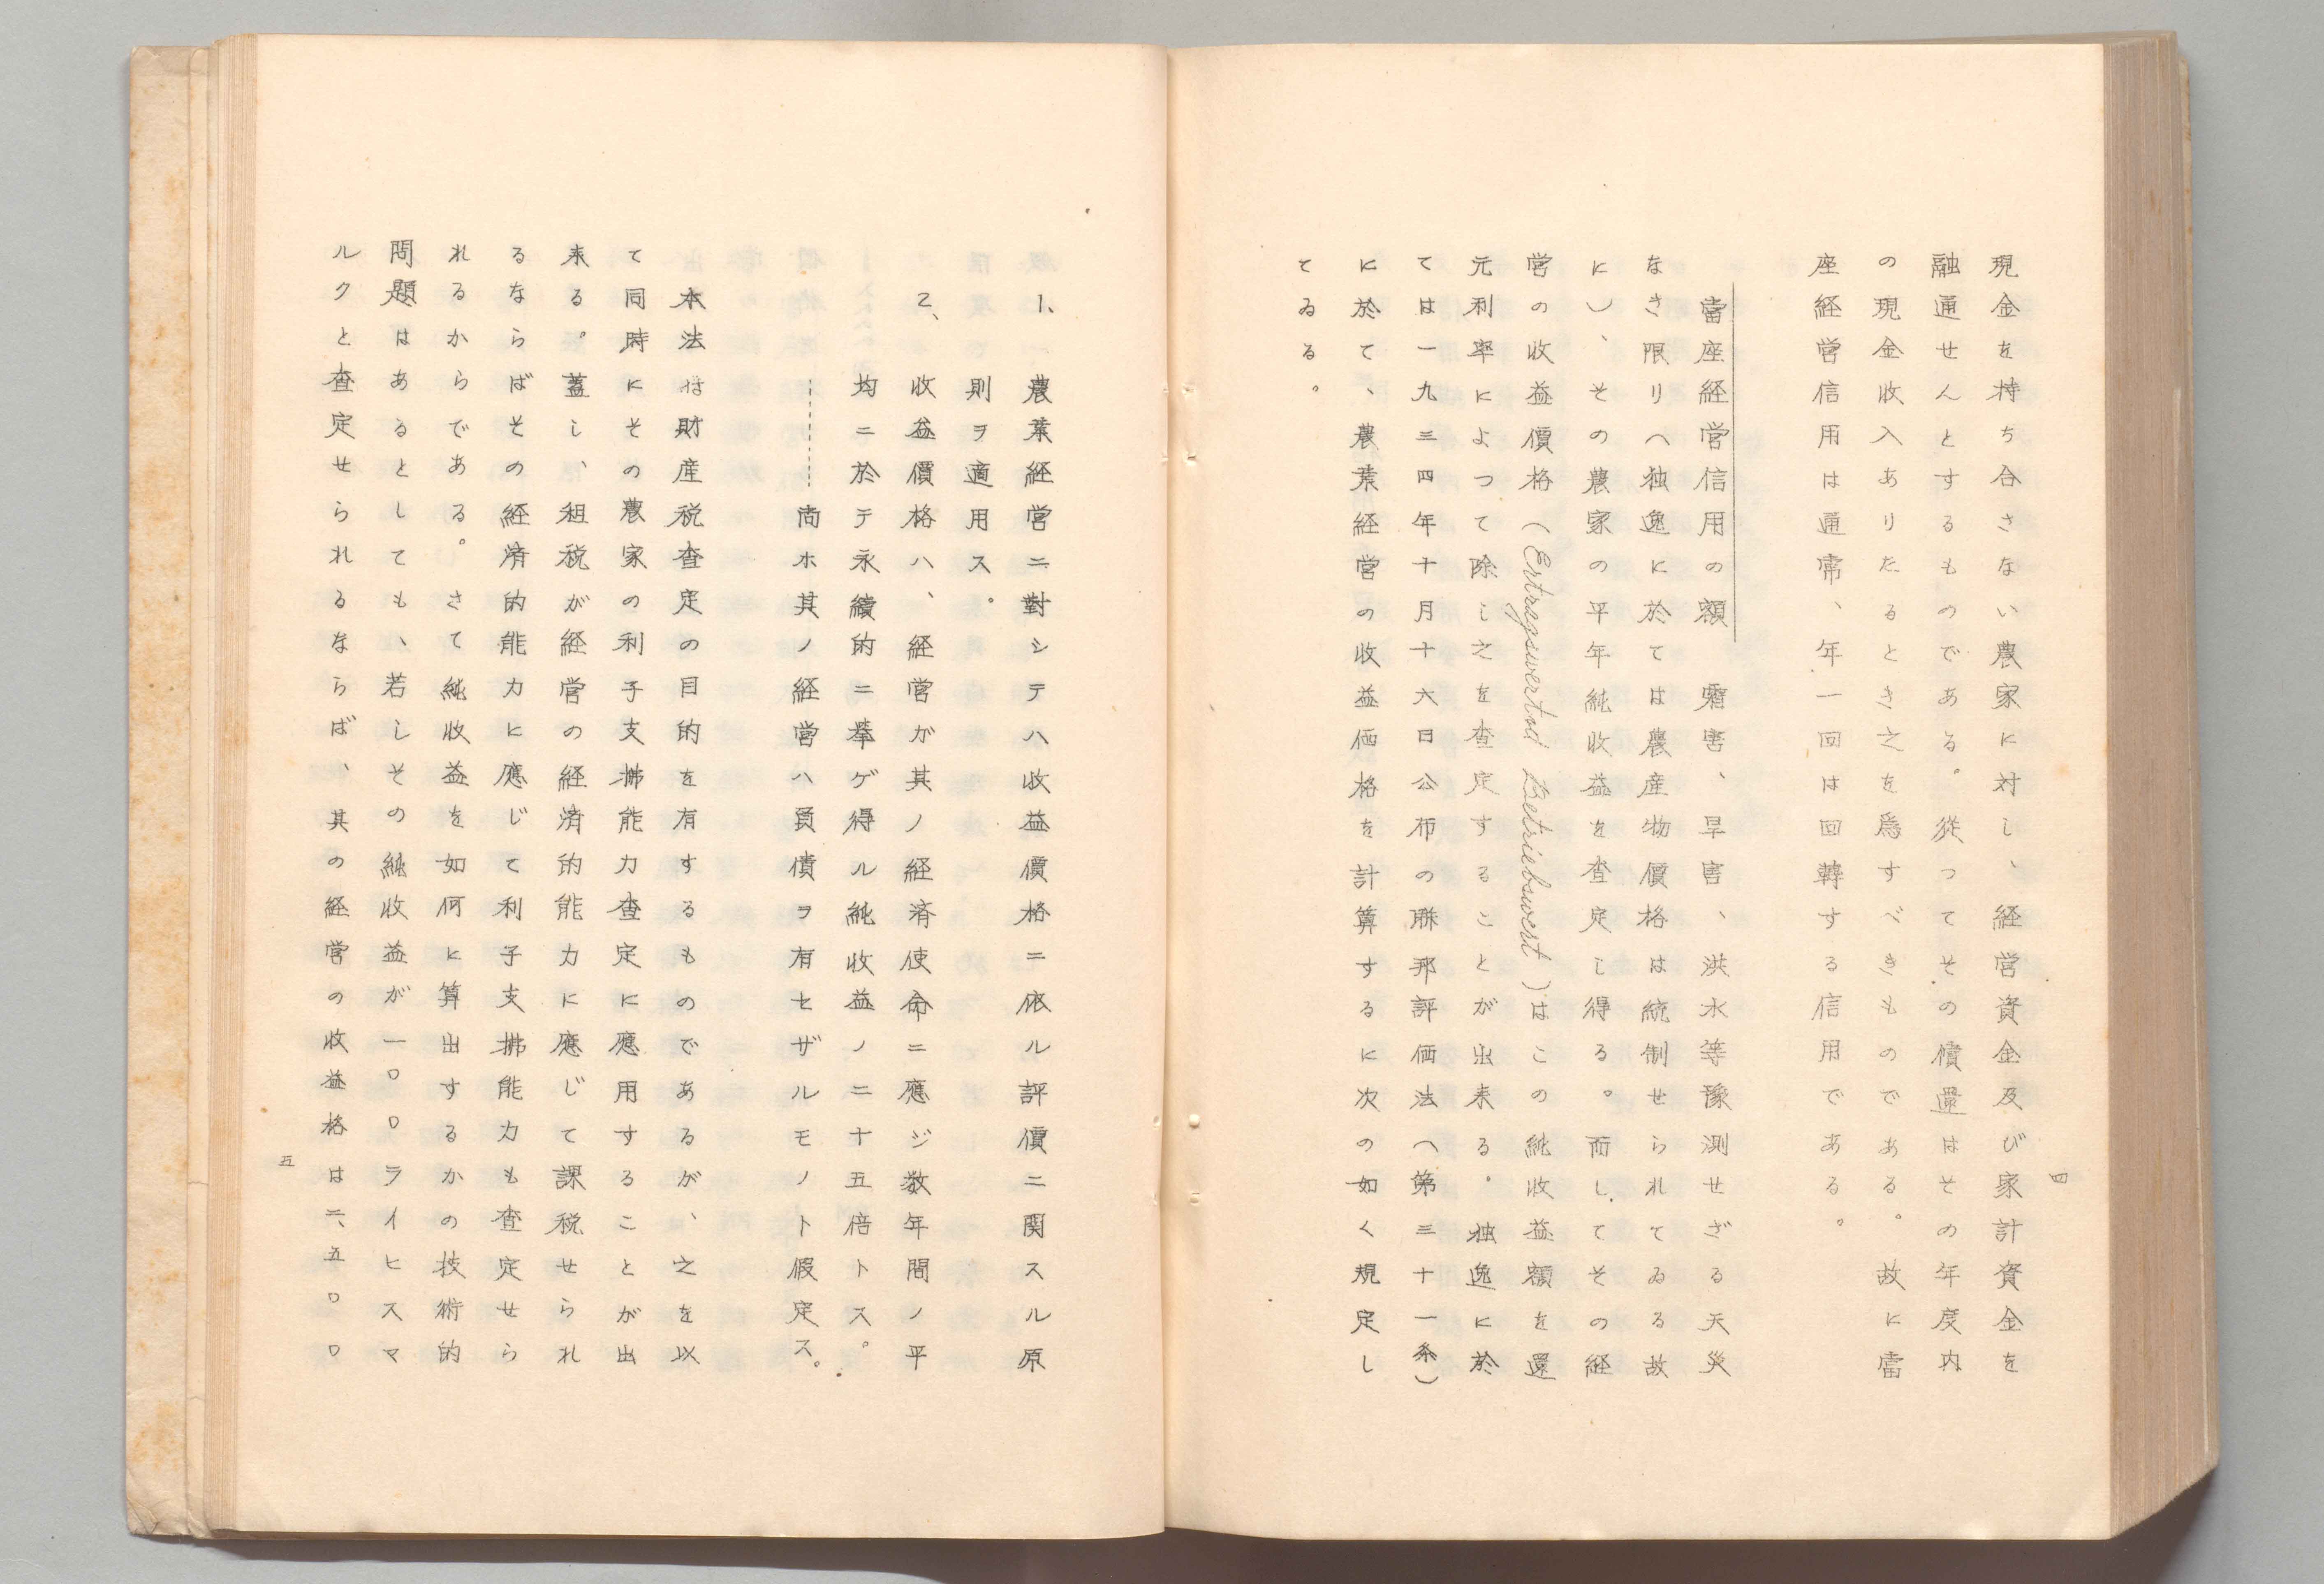 四
現金を持ち合さない農家に対し、経営資金及び家計資金を
融通せんとするものである。從つてその償還はその年度内
の現金收入ありたるとき之を爲すべきものである。故に當
座経営信用は通常、年一回は回轉する信用である。
當座経営信用の額　霜害、旱害、洪水等豫測せざる天災
なき限リ(独逸に於ては農産物價格は統制せられてゐる故
に)、その農家の平年純收益を査定し得る。而してその経
営の收益價格(Ertragswert Betriebswert)はこの純收益額を還
元利率によつて除し之を査定することが出来る。独逸に於
ては一九三四年十月十六日公布の聯邦評価法(第三十一条)
に於て、農業経営の收益価格を計算するに次の如く規定し
てゐる。
1、農業経営ニ對シテハ收益價格ニ依ル評價ニ関スル原
則ヲ適用ス。
2、收益價格ハ、経営が其ノ経済使命ニ應ジ数年間ノ平
均ニ於テ永續的ニ擧ゲ得ル純收益ノ二十五倍トス。
------尚ホ其ノ経営ハ負債ヲ有セザルモノト假定ス。
本法は財産税査定の目的を有するものであるが、之を以
て同時にその農家の利子支拂能力査定に應用することが出
来る。蓋し、租税が経営の経済的能力に應じて課税せられ
るならばその経済的能力に應じて利子支拂能力も査定せら
れるからである。さて純收益を如何に算出するかの技術的
問題はあるとしても、若しその純收益が一〇〇ライヒスマ
ルクと査定せられるならば、其の経営の收益格は二、五〇〇
五